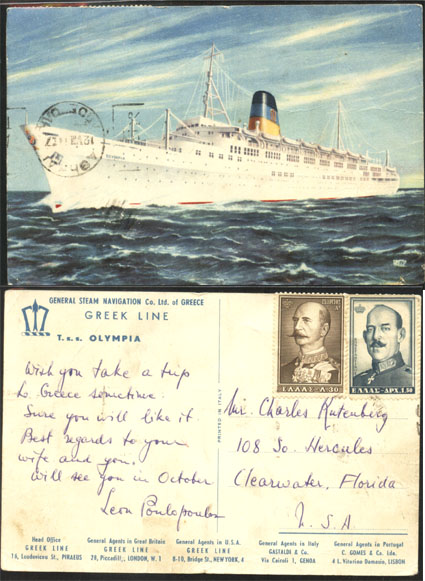 GENERAL STEAM NAVIGATION Co. Ltd. of GREECE
GREEK LINE
T. s. s. OLYMPIA
Wish you take a trip
to Greece sometime.
Sure you will like it
Best regards to your
wife and you.
Will see you in October
Leon Poulopoulos
PRINTED IN ITALY
ΕΛΛΑΣ-Λ.30
ΕΛΛΑΣ-ΔΡΧ.1.50
Mr. Charles Rutenberg
108 So. Hercules
Clearwater, Florida
U.S.A
Head Office
GREEK LINE
16, Loudovicou St., PIRAEUS
General Agents in Great Britain
GREEK LINE
28, Piccadilly, LONDON, W. 1
General Agents in U.S.A.
GREEK LINE
8-10, Bridge St., NEW YORK, 4
General Agents in Italy
GASTALDI & Co.
Via Cairoli 1, GENOA
General Agents in Portugal
C. GOMES & Co. Lda.
4 L. Vitorino Damasio, LISBON